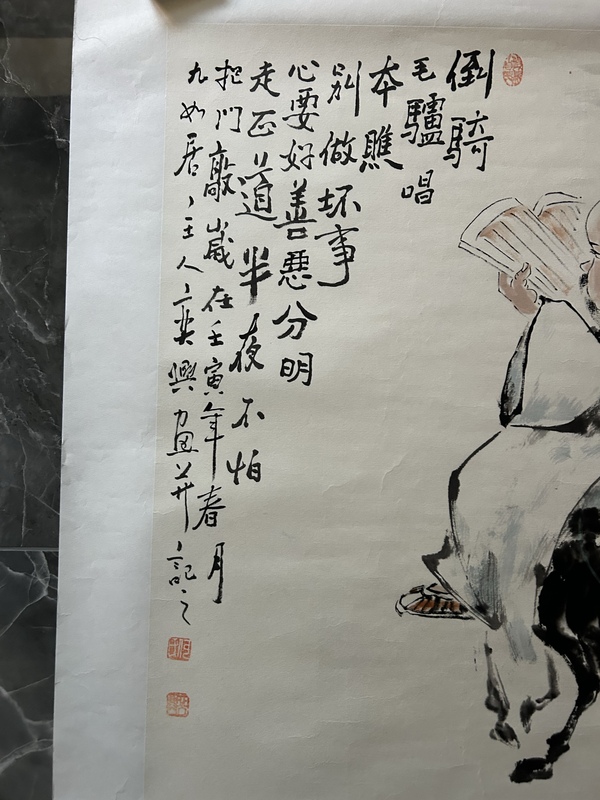 倒騎
毛驢唱
本瞧
别做坏事
心要好善惡分明
走正道半夜不怕
把门敲歲在壬寅年春月
九如居主人奕興畫并記之